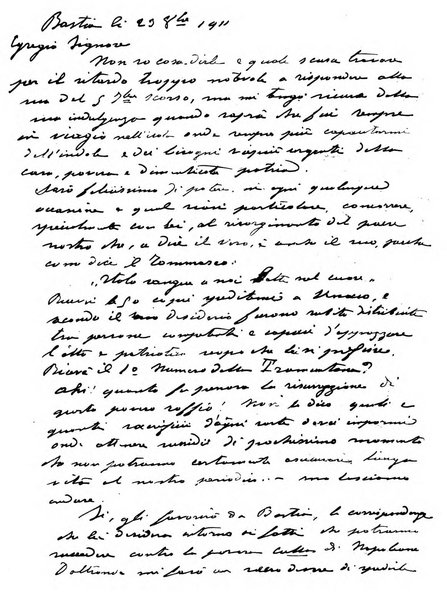 Bastia li 23 8bre 1911
Egregio Signore
Non so cosa dirle e quale scusa trovare
per il ritardo troppo notevole a rispondere alla
sua del 5 7bre scorso, ma mi tengo sicuro della
sua indulgenza quando saprà che fui sempre
in viaggio nell'isola onde sempre più
dell'indole e dei bisogni urgenti della
cara, povera e dimenticata patria.
Sarò felicissimo di potere in ogni qualunque
occasione e quel particolare, concorrere,
con lei, al risorgimento del paese
nostro che, a dire il vero, è anche il suo, poichè
come dice il Tommaseo:
nel cuore"
i 50 speditimi a Monaco, e
secondo il suo desiderio furono subito distribuite
tra persone competenti e capaci d'apprezzare
l'alto e patriottico scopo che lei si prefisse.
il 1o Numero della Tramontana?
Ahi! quanto fa la risurrezione di
questo povero foglio! Non le dico quali e
quanti sacrifici d'ogni sorta dovei impormi
onde ottenere sussidi di pochissimo momento
che non potranno certamente assicurare lunga
vita al nostro periodico... ma lasciamo
andare.
Sì, gli da Bastia, la corrispondenza
che lei desidera attorno ai fatti che potranno
succedere contro la povera di Napoleone
D'altronde mi farò un dovere di spedirle